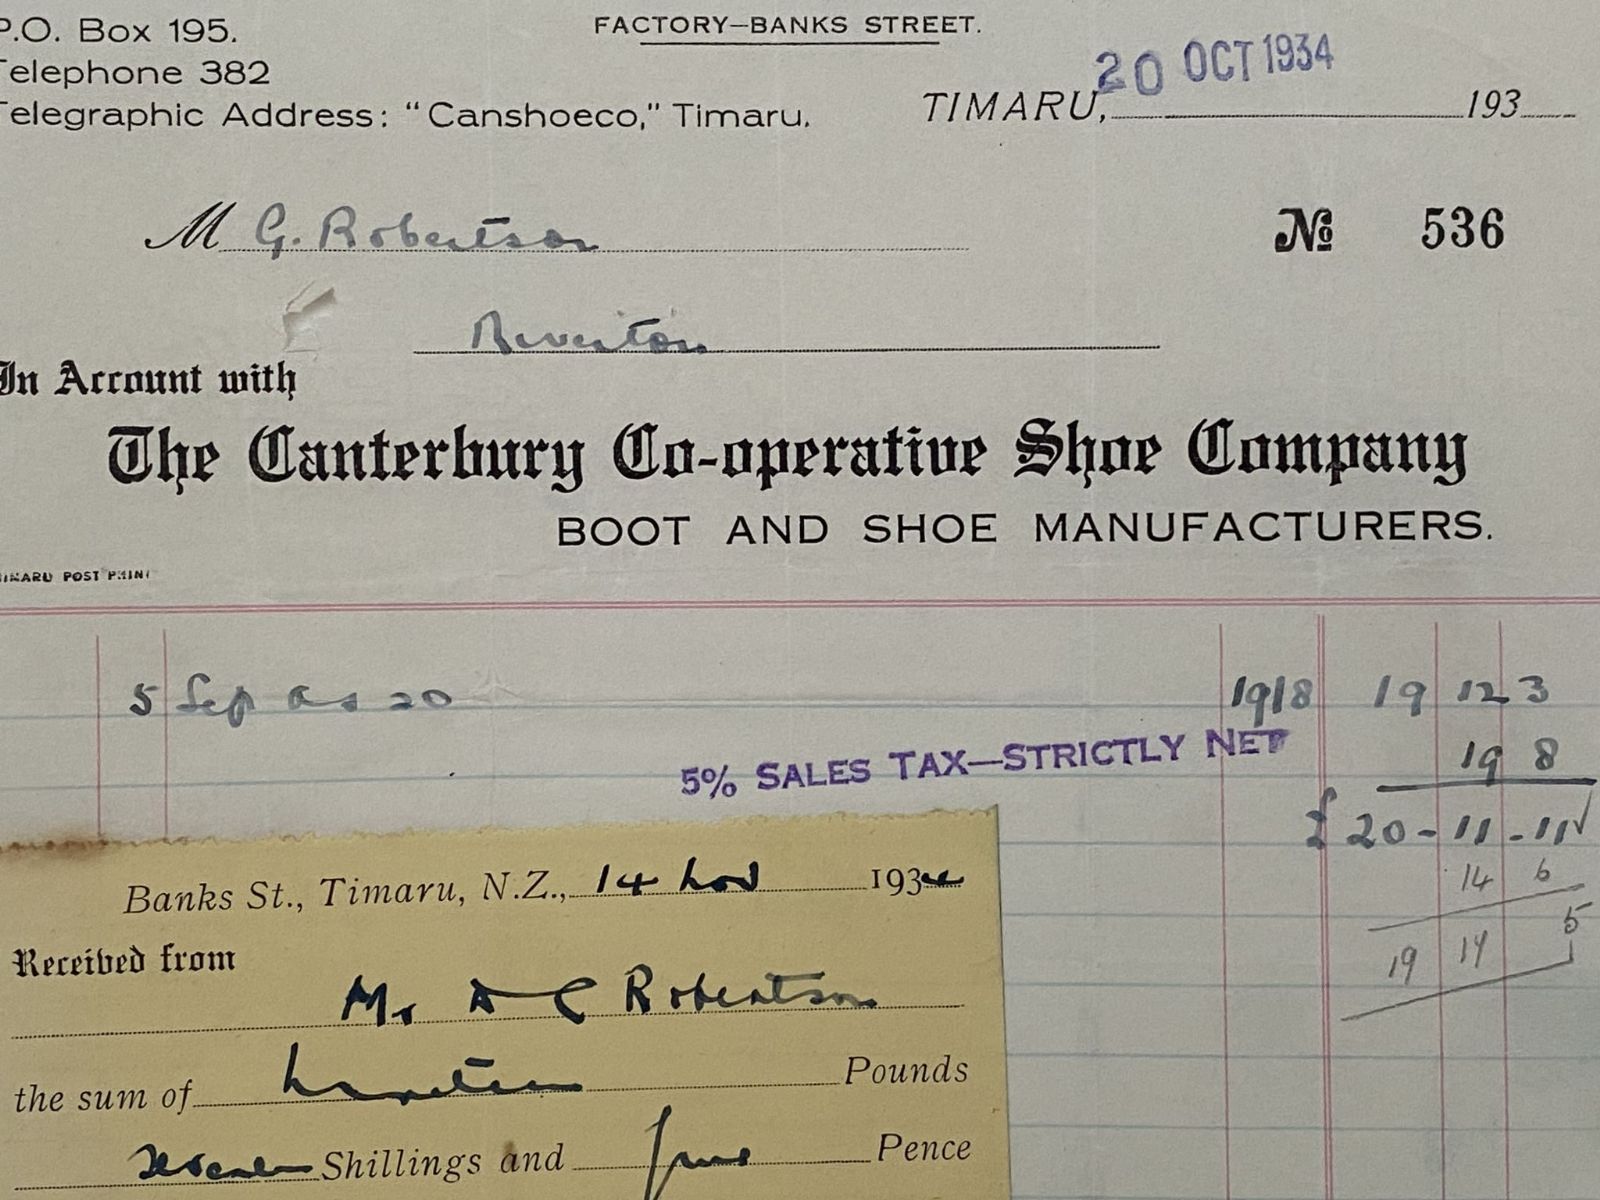 FACTORY—BANKS STREET.
P.O. Box 195.
Telephone 382
Telegraphic Address: "Canshoeco," Timaru.
20 OCT 1934
TIMARU, 193
M G. Robertson
No 536
Riverton
In Account with
The Canterbury Co-operative Shoe Company
BOOT AND SHOE MANUFACTURERS.
TIMARU POST PRINT
5 Sep as 20 19/8 19 12 3
5% SALES TAX—STRICTLY NET 19 8
£ 20 - 11 - 11
14 6
19 17 5
Banks St., Timaru, N.Z., 14 Nov 1934
Received from
Mr A C Robertson
the sum of Nineteen Pounds
Seventeen Shillings and five Pence